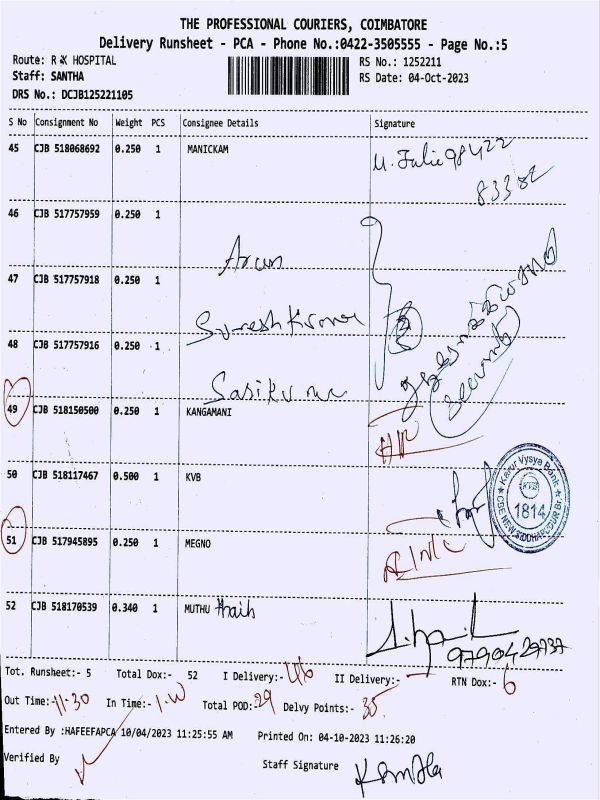 THE PROFESSIONAL COURIERS, COIMBATORE
Delivery Runsheet - PCA - Phone No.:0422-3505555 - Page No.:5
Route: R K HOSPITAL
RS No.: 1252211
Staff: SANTHA
RS Date: 04-Oct-2023
DRS No.: DCJB125221105
S No Consignment No Weight PCS Consignee Details Signature
45 CJB 518068692 0.250 1 MANICKAM
98422
83382
46 CJB 517757959 0.250 1
Arun
47 CJB 517757918 0.250 1
Sureshkumar
48 CJB 517757916 0.250 1
Sasikumar
Security
49 CJB 518150500 0.250 1 KANGAMANI
50 CJB 518117467 0.500 1 KVB
Karur Vysya Bank
KVB
1814
CBE NEW SIDDHAPUDUR Br.
51 CJB 517945895 0.250 1 MEGNO
52 CJB 518170539 0.340 1 MUTHU
9790429737
Tot. Runsheet:- 5 Total Dox:- 52 I Delivery:- 46 II Delivery:- - RTN Dox:- 6
Out Time:- 11.30 In Time:- Total POD: 29 Delvy Points:- 35
Entered By :HAFEEFAPCA 10/04/2023 11:25:55 AM Printed On: 04-10-2023 11:26:20
Verified By
Staff Signature